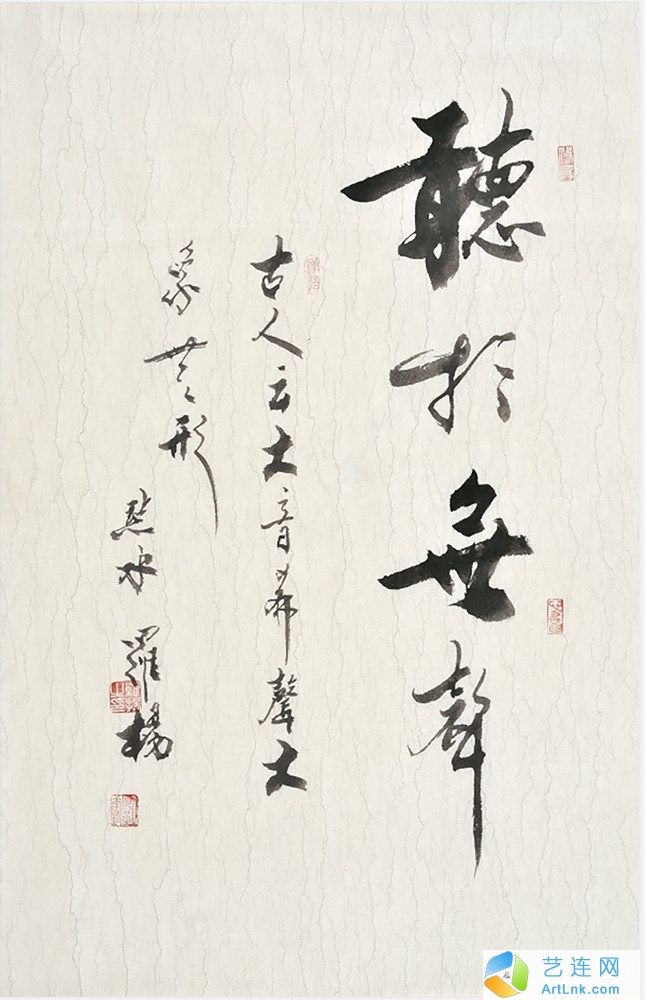 聽於無聲
古人云大音希聲大
象無形
點水 羅楊
艺连网
ArtLnk.com